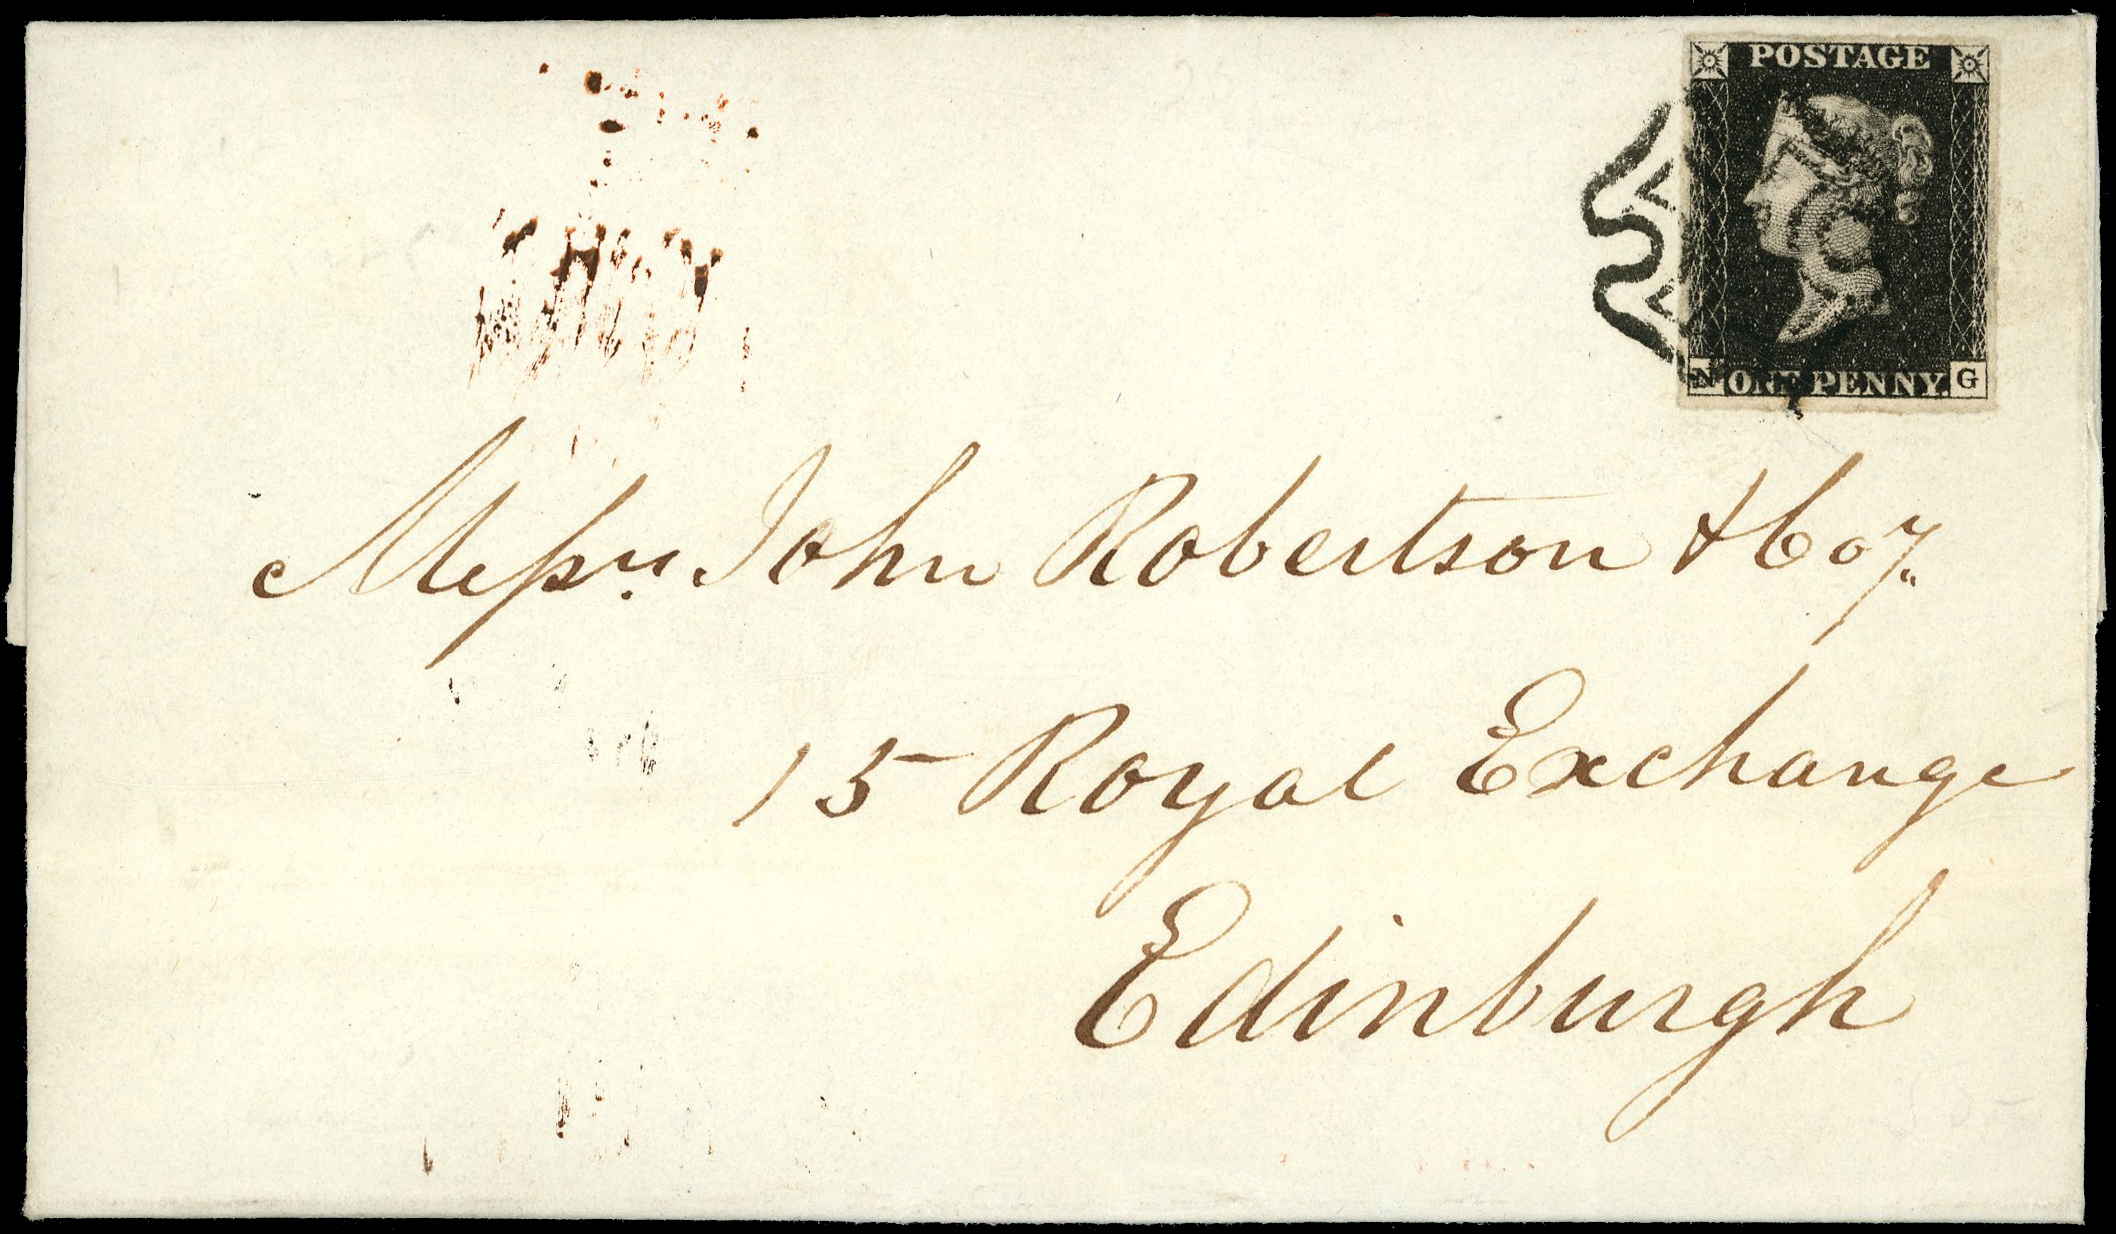 POSTAGE
N ONE PENNY. G
Messrs. John Robertson & Coy.
15 Royal Exchange
Edinburgh